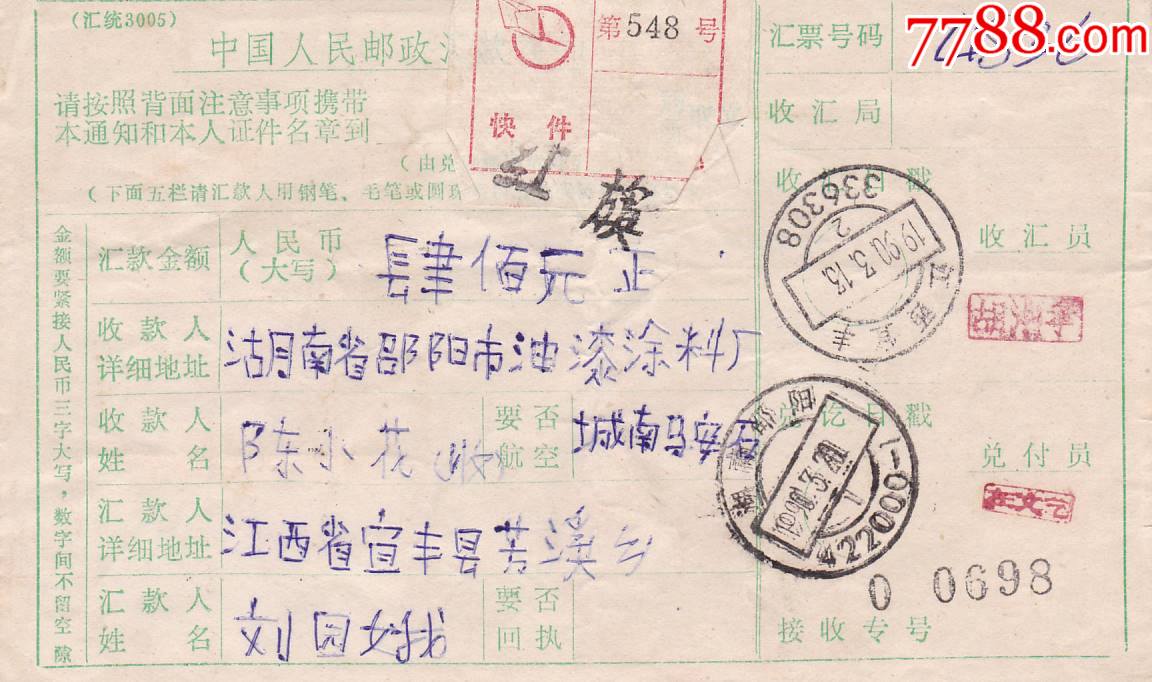 (汇统3005)
7788.com
中国人民邮政汇
第548号
汇票号码
请按照背面注意事项携带
本通知和本人证件名章到
快件
收汇局
(由兑
(下面五栏请汇款人用钢笔、毛笔或圆珠
收汇日戳
金额要紧接人民币三字大写，数字间不留空隙
汇款金额
人民币
(大写)
肆佰元正
336308
2
1990.3.13.
江西宜丰
收汇员
收款人
详细地址
湖南省邵阳市油漆涂料厂
收款人
姓名
陈小花(收)
要否
航空
城南马安石
兑讫日戳
湖南邵阳
422000-1
兑付员
汇款人
详细地址
江西省宣丰县芳溪乡
0 0698
汇款人
姓名
刘园
要否
回执
接收专号